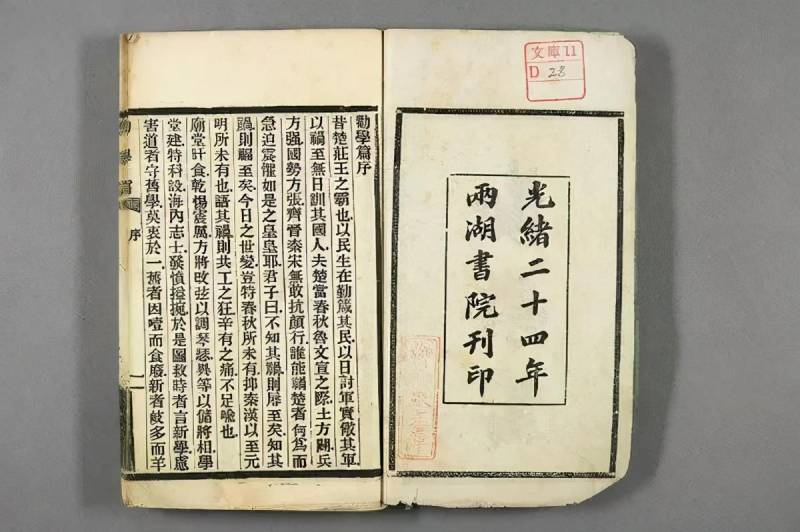 文庫11
D 28
光緒二十四年
兩湖書院刊印
勸學篇序
昔楚莊王之霸也以民生在勤箴其民以日討軍實儆其軍
以禍至無日訓其國人夫楚當春秋魯文宣之際土方闢兵
方强國勢方張齊晉秦宋無敢抗顏行誰能禍楚者何爲而
急迫震懼如是之皇皇耶君子曰不知其禍則辱至矣知其
禍則福至矣今日之世變豈特春秋所未有抑秦漢以至元
明所未有也語其禍則共工之狂辛有之痛不足喩也
廟堂旰食乾惕震厲方將改弦以調琴瑟異等以儲將相學
堂建特科設海內志士發憤搤捥於是圖救時者言新學慮
害道者守舊學莫衷於一舊者因噎而食廢新者歧多而羊
序